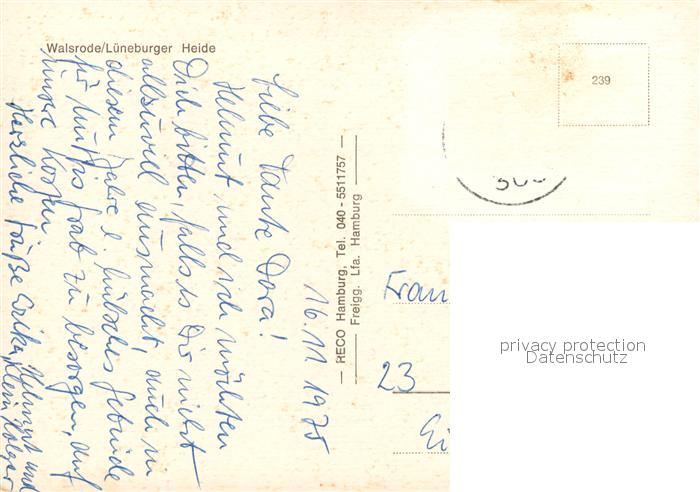 Walsrode/Lüneburger Heide
239
RECO Hamburg, Tel. 040 - 5511757
Freigg. Lfa. Hamburg
16. 11. 1975
Liebe Tante Dora!
Helmut und ich möchten
Dich bitten, falls es Dir nicht
allzuviel ausmacht, auch in
diesem Jahre e. hübsches Gebinde
für Muttis Grab zu besorgen, auf
unsere Kosten
Herzliche Grüße Erika, Helmut und
klein Holger
Frau
23
privacy protection
Datenschutz